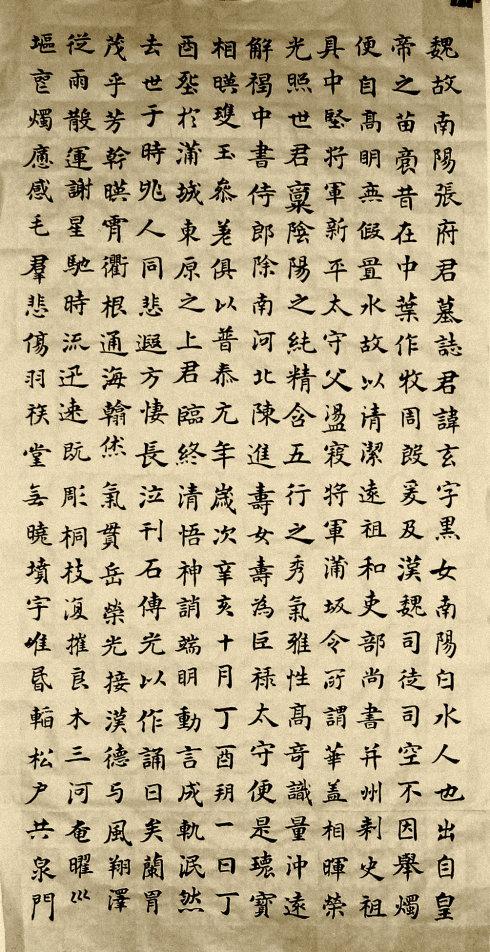 魏故南陽張府君墓誌君諱玄字黑女南陽白水人也出自皇
帝之苗裔昔在中葉作牧周殷爰及漢魏司徒司空不因舉燭
便自高明無假置水故以清潔遠祖和吏部尚書并州刺史祖
具中堅將軍新平太守父盪寇將軍蒲坂令所謂華蓋相暉榮
光照世君稟陰陽之純精含五行之秀氣雅性高奇識量沖遠
解褐中書侍郎除南河北陳進壽女壽為巨祿太守便是瓌寶
相暎雙玉參差俱以普泰元年歲次辛亥十月丁酉朔一日丁
酉塟於蒲城東原之上君臨終清悟神誚端明動言成軌泯然
去世于時兆人同悲遐方悽長泣刊石傳光以作誦曰矣蘭胄
茂乎芳幹暎霄衢根通海翰然氣貫岳榮光接漢德与風翔澤
從雨散運謝星馳時流迅速既彫桐枝復摧良木三河奄曜巛
塸燭應感毛羣悲傷羽族堂無曉墳宇唯昏轜松戶共泉門